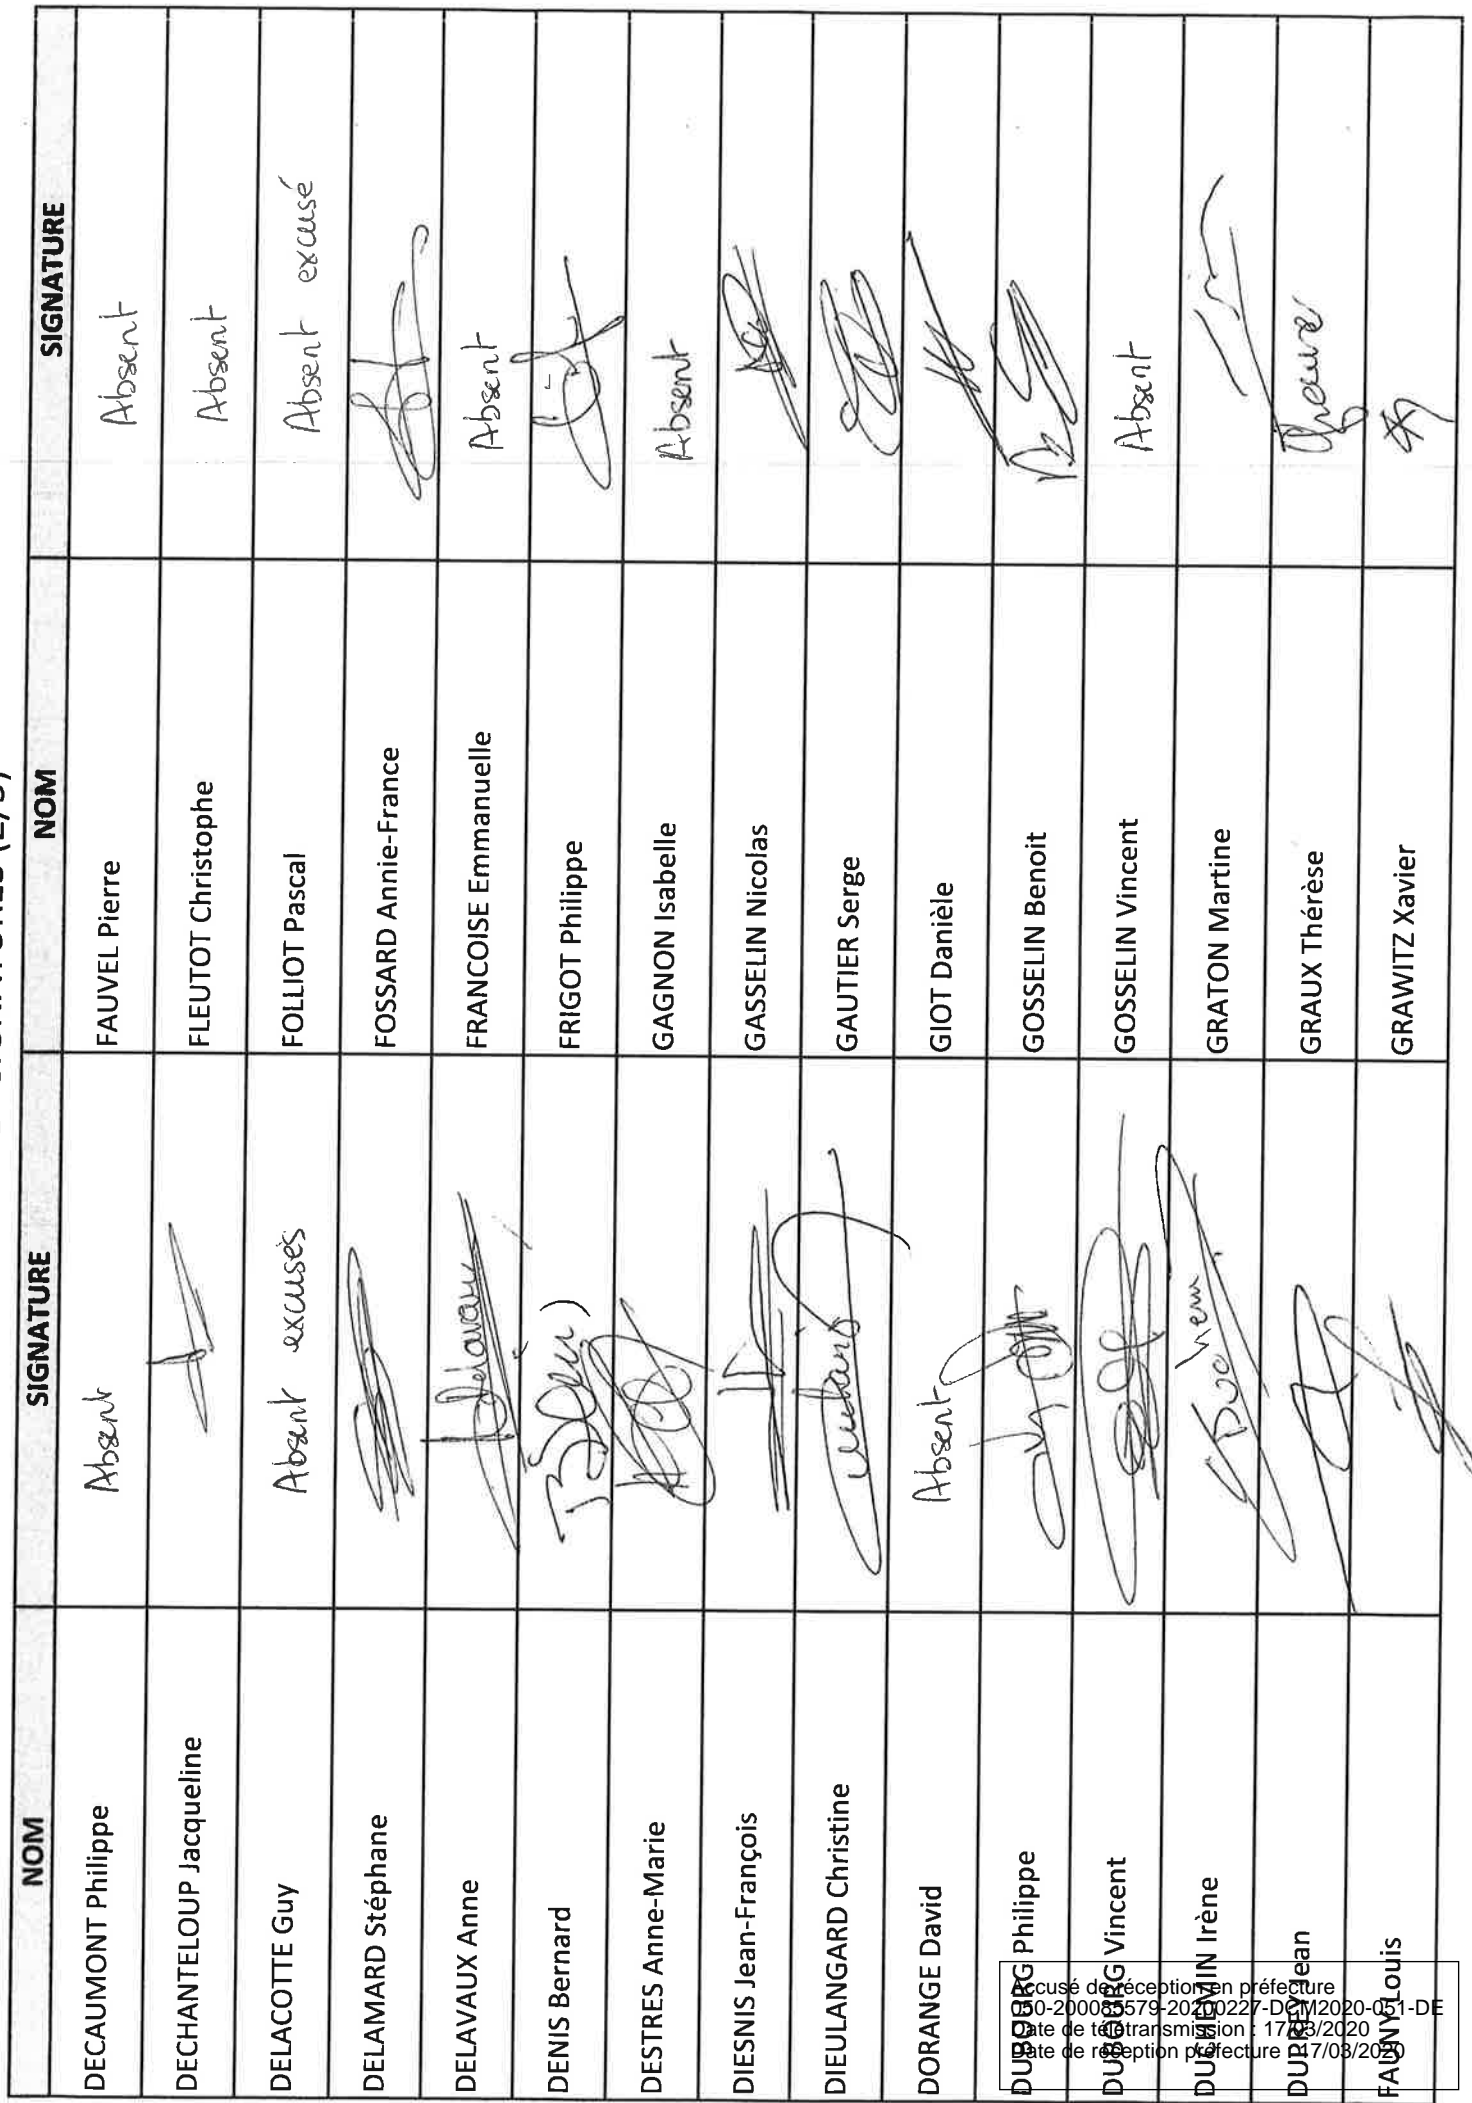 NOM SIGNATURE NOM SIGNATURE
DECAUMONT Philippe Absent FAUVEL Pierre Absent
DECHANTELOUP Jacqueline FLEUTOT Christophe Absent
DELACOTTE Guy Absent excusés FOLLIOT Pascal Absent excusé
DELAMARD Stéphane FOSSARD Annie-France
DELAVAUX Anne Delavaux FRANCOISE Emmanuelle Absent
DENIS Bernard FRIGOT Philippe
DESTRES Anne-Marie GAGNON Isabelle Absent
DIESNIS Jean-François GASSELIN Nicolas
DIEULANGARD Christine GAUTIER Serge
DORANGE David Absent GIOT Danièle
DUBOURG Philippe GOSSELIN Benoit
DUBOURG Vincent GOSSELIN Vincent Absent
DUCHEMIN Irène GRATON Martine
DUPREY Jean GRAUX Thérèse
FAUNY Louis GRAWITZ Xavier
Accusé de réception en préfecture
050-200085579-20200227-DCM2020-051-DE
Date de télétransmission : 17/03/2020
Date de réception préfecture : 17/03/2020